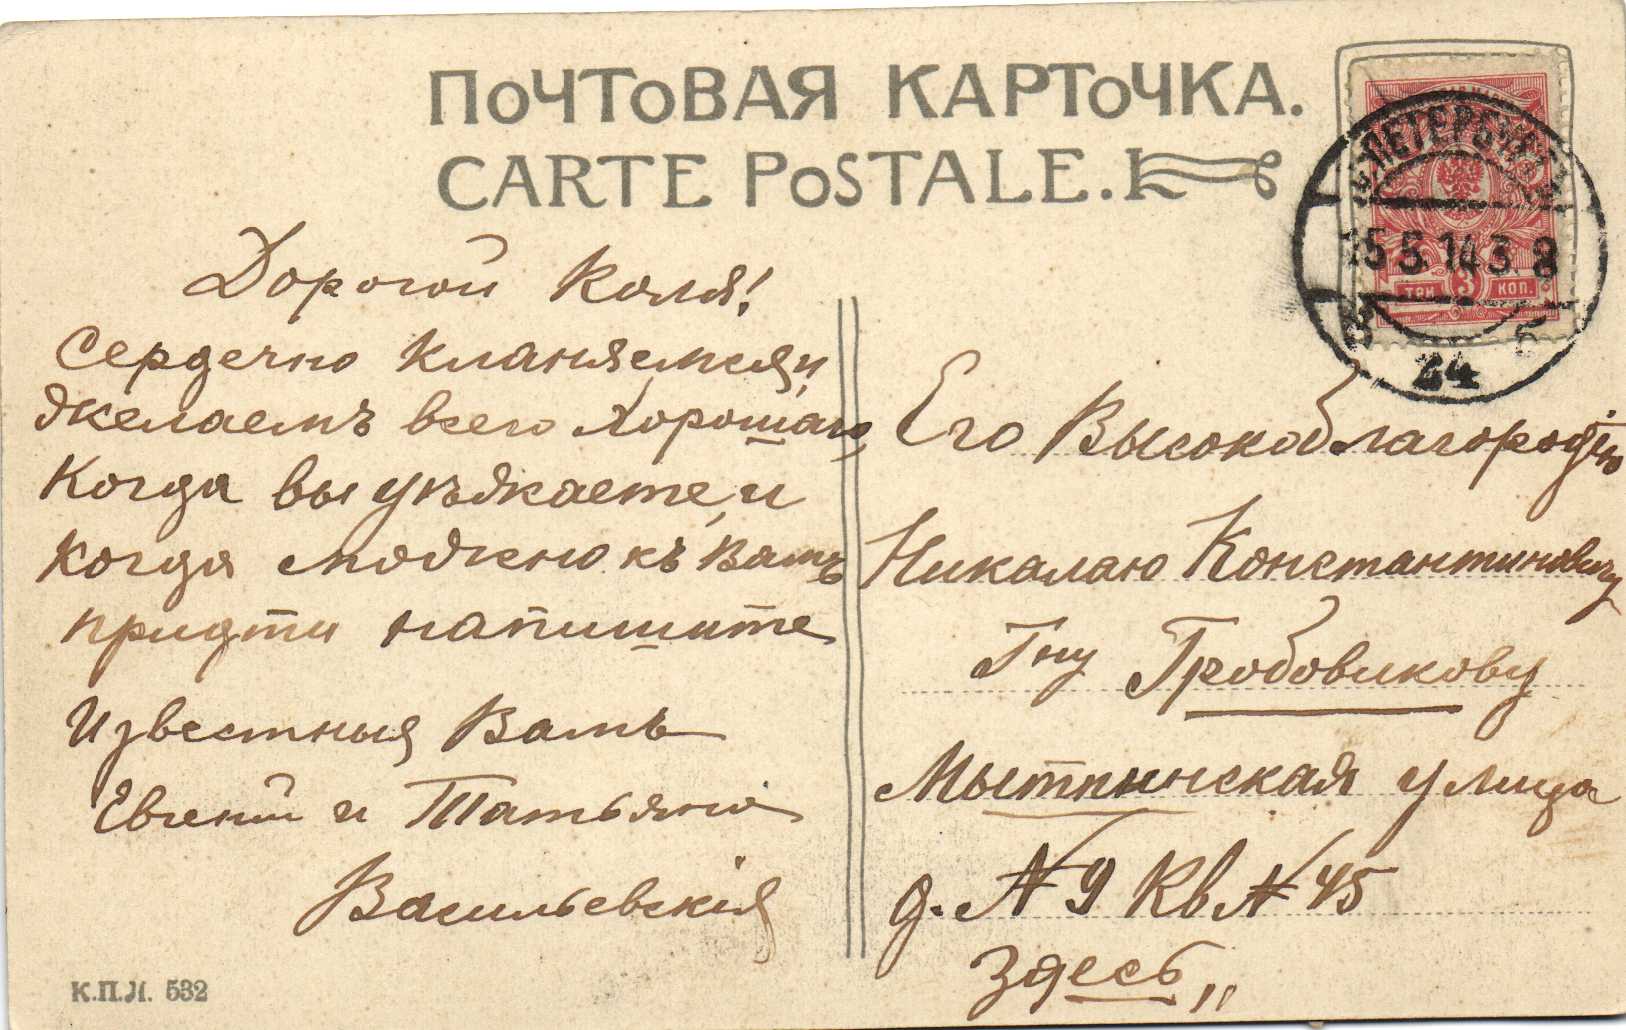 ПОЧТОВАЯ КАРТОЧКА.
CARTE POSTALE.
С.ПЕТЕРБУРГЪ
15 5.14 3. 8
ТРИ 3 КОП.
24
Дорогой Коля!
Сердечно кланяемся и
желаемъ всего хорошаго,
Когда вы уѣжжаете, и
когда можено къ Вамъ
придти напишите
Известныя Вамъ
Евгений и Татьяна
Васильевския
Его Высокоблагородію
Николаю Константиновичу
Гну Гробовикову
Мытнинская улица
д. № 9 Кв № 45
Здесь
К.П.И. 532